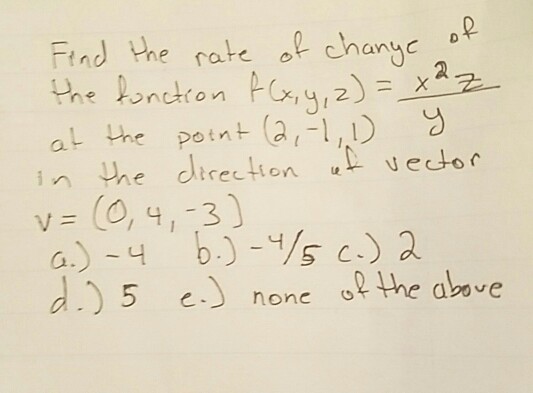 Find the rate of change of
the function f(x,y,z) = x²z / y
at the point (2,-1,1)
in the direction of vector
v = (0,4,-3)
a.) -4 b.) -4/5 c.) 2
d.) 5 e.) none of the above